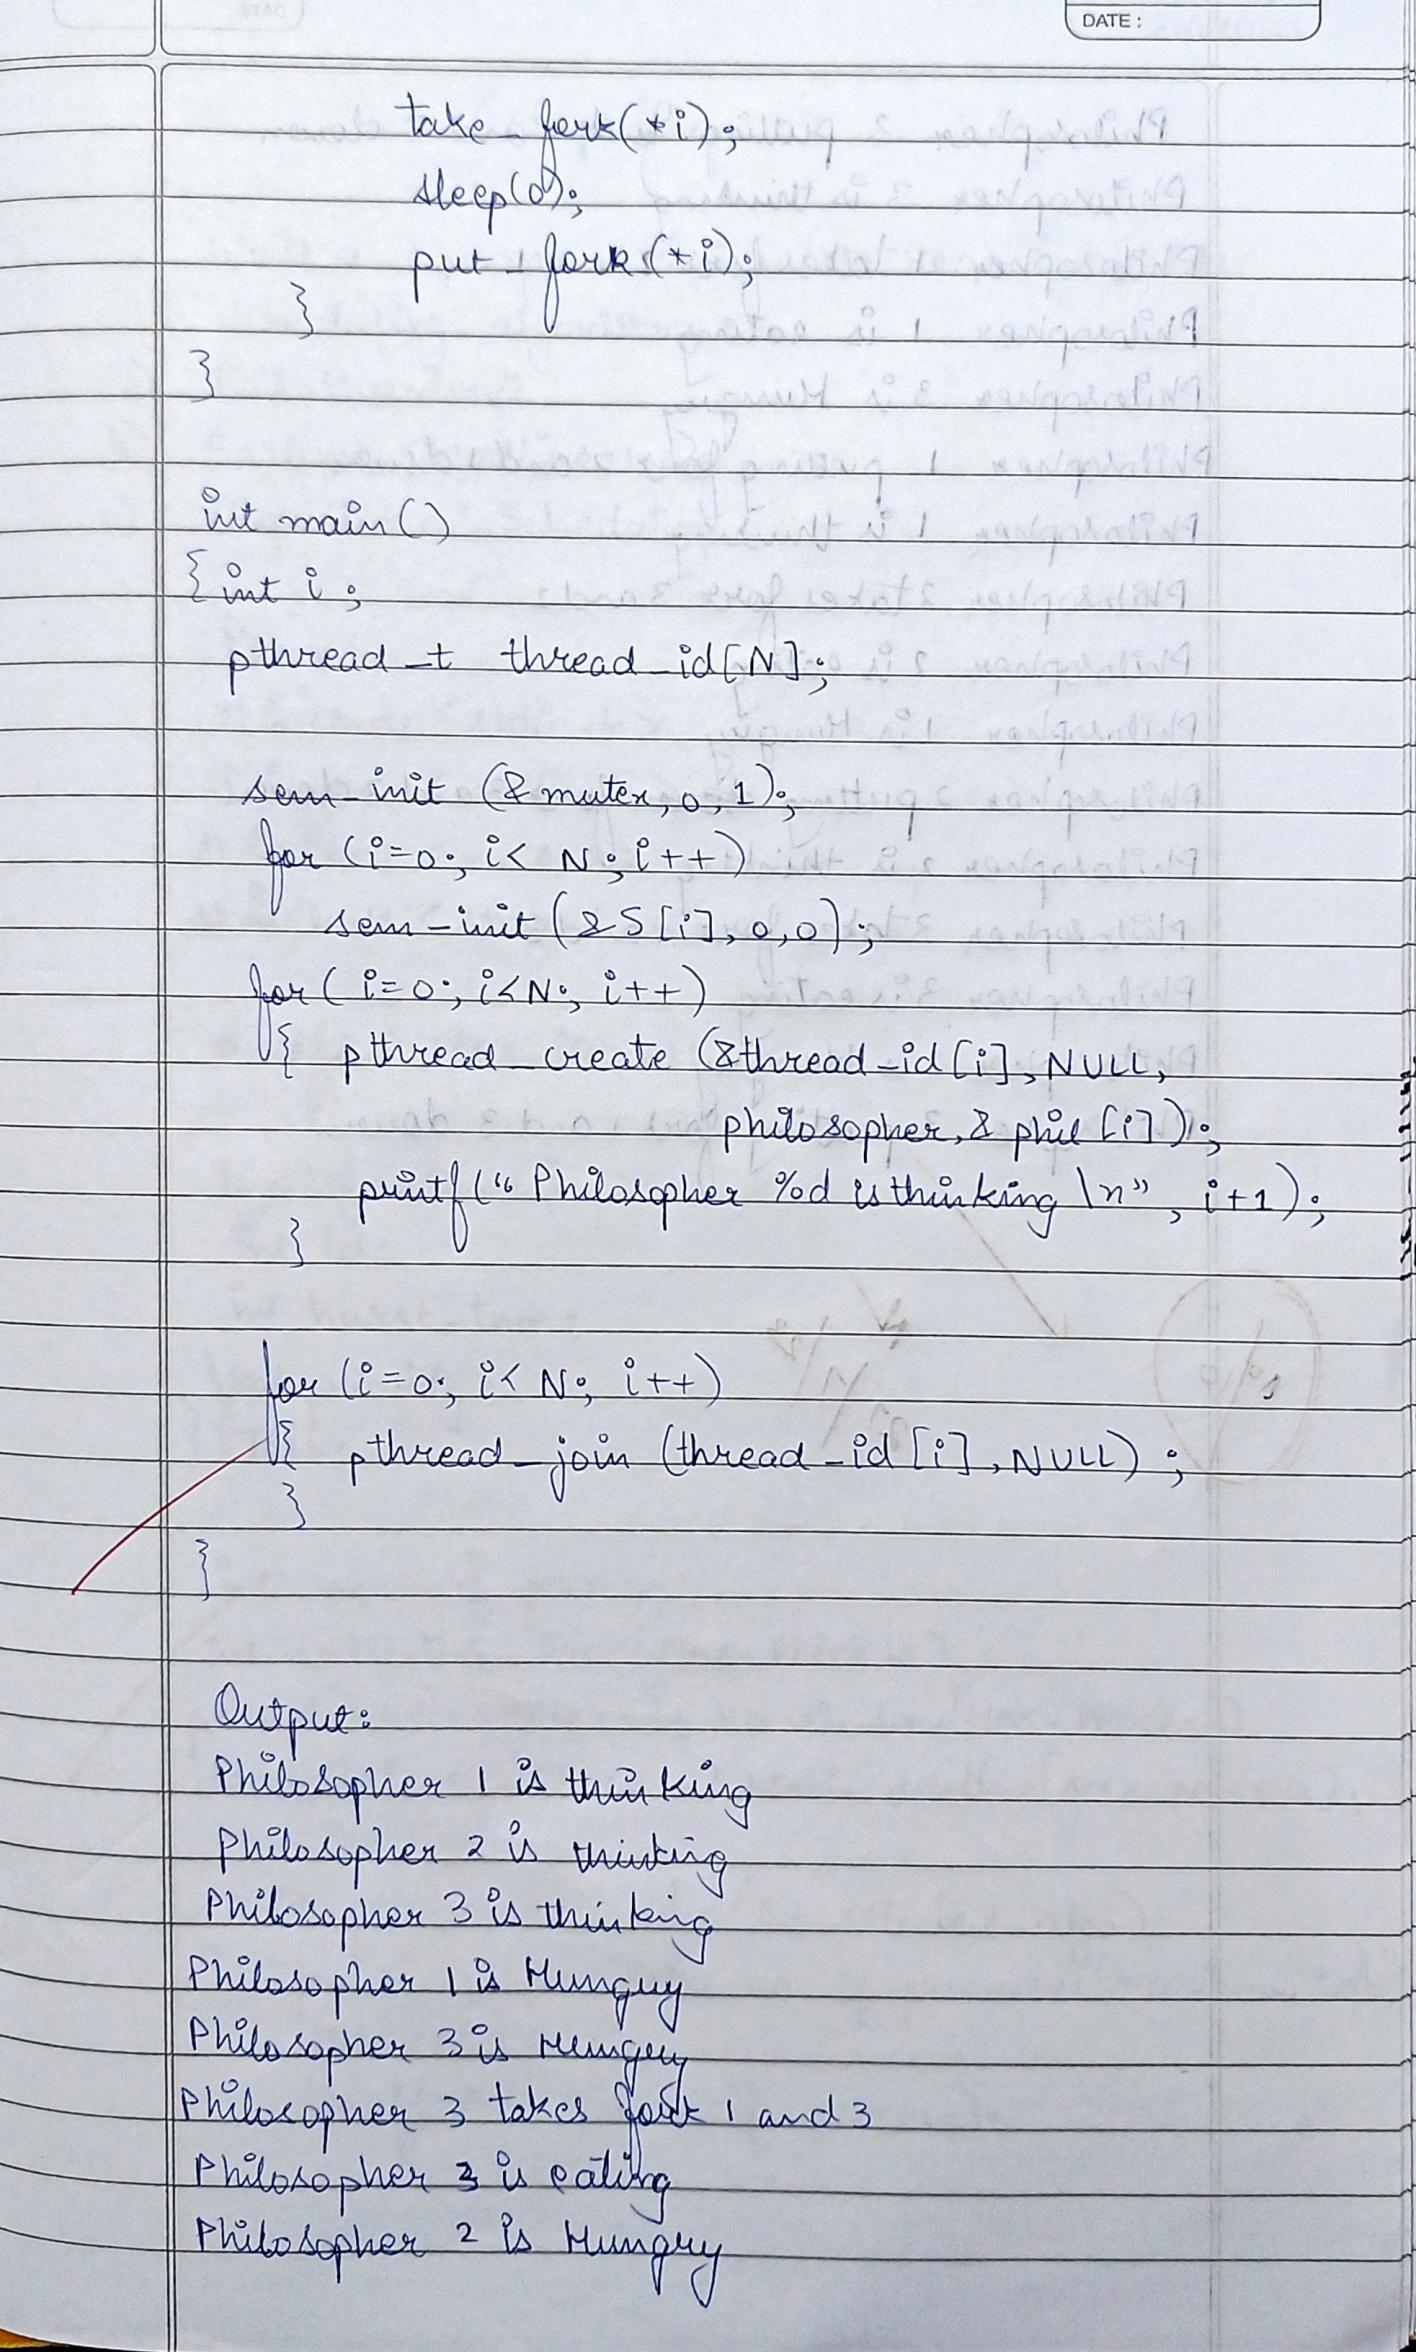 DATE :
take_fork(*i);
sleep(0);
put_fork(*i);
}
}
int main()
{ int i;
pthread_t thread_id[N];
sem_init (&mutex, 0, 1);
for (i=0; i< N; i++)
sem_init (&S[i], 0, 0);
for ( i=0; i<N; i++)
{ pthread_create (&thread_id[i], NULL,
philosopher, & phil [i]);
printf (“ Philosopher %d is thinking \n”, i+1);
}
for (i=0; i< N; i++)
{ pthread_join (thread_id [i], NULL) ;
}
}
Output:
Philosopher 1 is thinking
Philosopher 2 is thinking
Philosopher 3 is thinking
Philosopher 1 is Hungry
Philosopher 3 is Hungry
Philosopher 3 takes fork 1 and 3
Philosopher 3 is eating
Philosopher 2 is Hungry